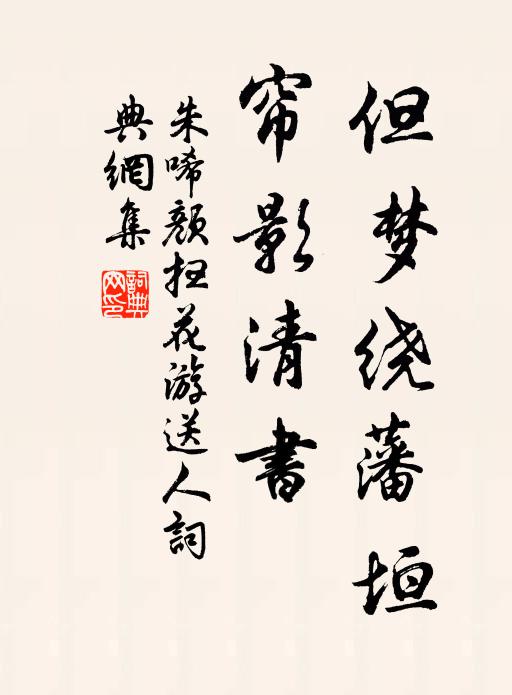 但梦绕藩垣
帘影清書
朱唏颜扫花游送人詞
典網集
詞典
网印